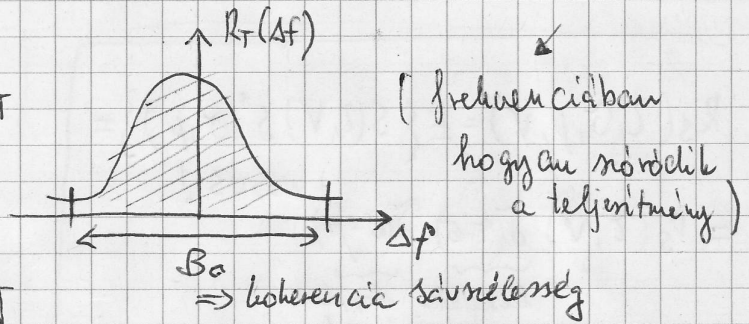 R_T(Δf)
(frekvenciában
hogyan szóródik
a teljesítmény)
Δf
B_c
⇒ koherencia sávszélesség